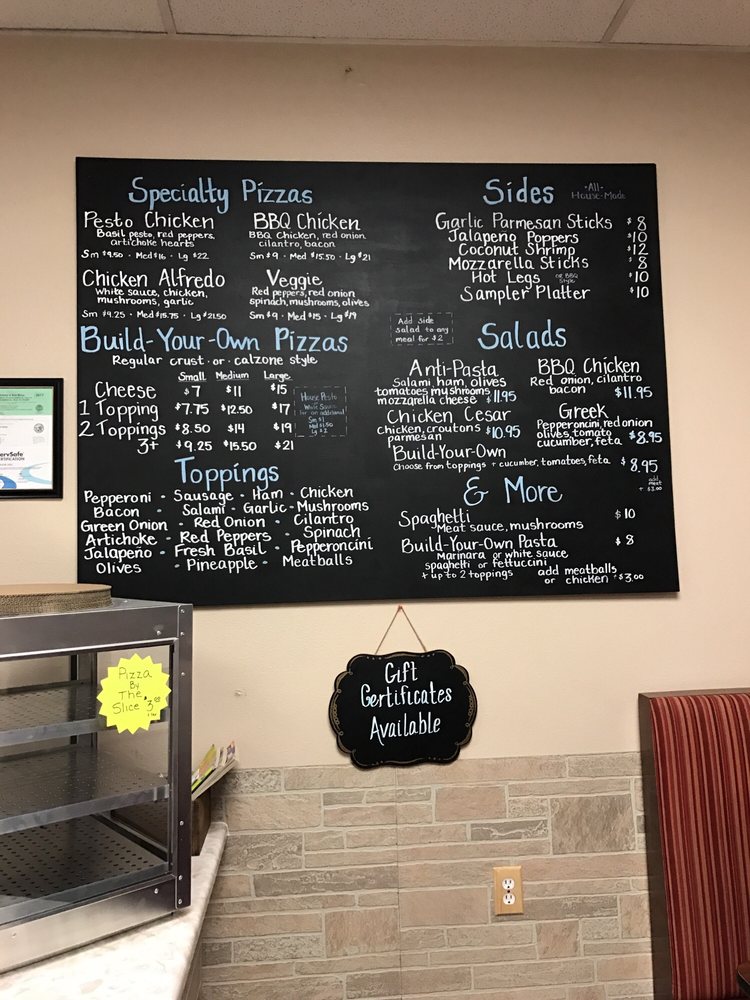 Specialty Pizzas
Pesto Chicken
Basil pesto, red peppers,
artichoke hearts
Sm $9.50 • Med $16 • Lg $22
BBQ Chicken
BBQ Chicken, red onion
cilantro, bacon
Sm $9 • Med $15.50 • Lg $21
Chicken Alfredo
White sauce, chicken,
mushrooms, garlic
Sm $9.25 • Med $15.75 • Lg $21.50
Veggie
Red peppers, red onion
spinach, mushrooms, olives
Sm $9 • Med $15 • Lg $19
Build-Your-Own Pizzas
Regular crust • or • calzone style
Small Medium Large
Cheese $7 $11 $15
1 Topping $7.75 $12.50 $17
2 Toppings $8.50 $14 $19
3+ $9.25 $15.50 $21
House Pesto
White Sauce
for an additional
Sm $1
Med $1.50
Lg $2
Toppings
Pepperoni • Sausage • Ham • Chicken
Bacon • Salami • Garlic • Mushrooms
Green Onion • Red Onion • Cilantro
Artichoke • Red Peppers • Spinach
Jalapeño • Fresh Basil • Pepperoncini
Olives • Pineapple • Meatballs
Sides
• All •
House-Made
Garlic Parmesan Sticks $8
Jalapeno Poppers $10
Coconut Shrimp $12
Mozzarella Sticks $8
Hot Legs or BBQ Style $10
Sampler Platter $10
Add side
salad to any
meal for $2
Salads
Anti-Pasta
Salami, ham, olives
tomatoes mushrooms
mozzarella cheese $11.95
BBQ Chicken
Red onion, cilantro
bacon $11.95
Chicken Cesar
Chicken, croutons
parmesan $10.95
Greek
Pepperoncini, red onion
olives, tomato
cucumber, feta $8.95
Build-Your-Own
Choose from toppings + cucumber, tomatoes, feta $8.95
add
meat
+ $3.00
& More
Spaghetti $10
Meat sauce, mushrooms
Build-Your-Own Pasta $8
Marinara or white sauce
spaghetti or fettuccini
+ up to 2 toppings
add meatballs
or chicken + $3.00
ServSafe
CERTIFICATION
Pizza
By
The
Slice $3.00
Gift
Certificates
Available